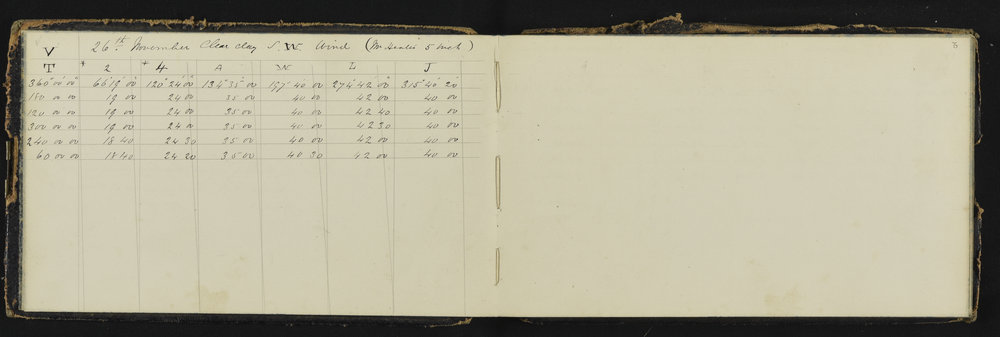 V 26th November Clear day S.W. Wind (Mr 5 inch)
T * 2 * 4 A W L J
360° 00' 00" 66° 19' 00" 120° 24' 00" 134° 35' 00" 157° 40' 00" 274° 42' 00" 315° 40' 20"
180 00 00 19 00 24 00 35 00 40 00 42 00 40 00
120 00 00 19 00 24 00 35 00 40 00 42 40 40 00
300 00 00 19 00 24 00 35 00 40 00 42 30 40 00
240 00 00 18 40 24 30 35 00 40 00 42 00 40 00
60 00 00 18 40 24 20 35 00 40 30 42 00 40 00